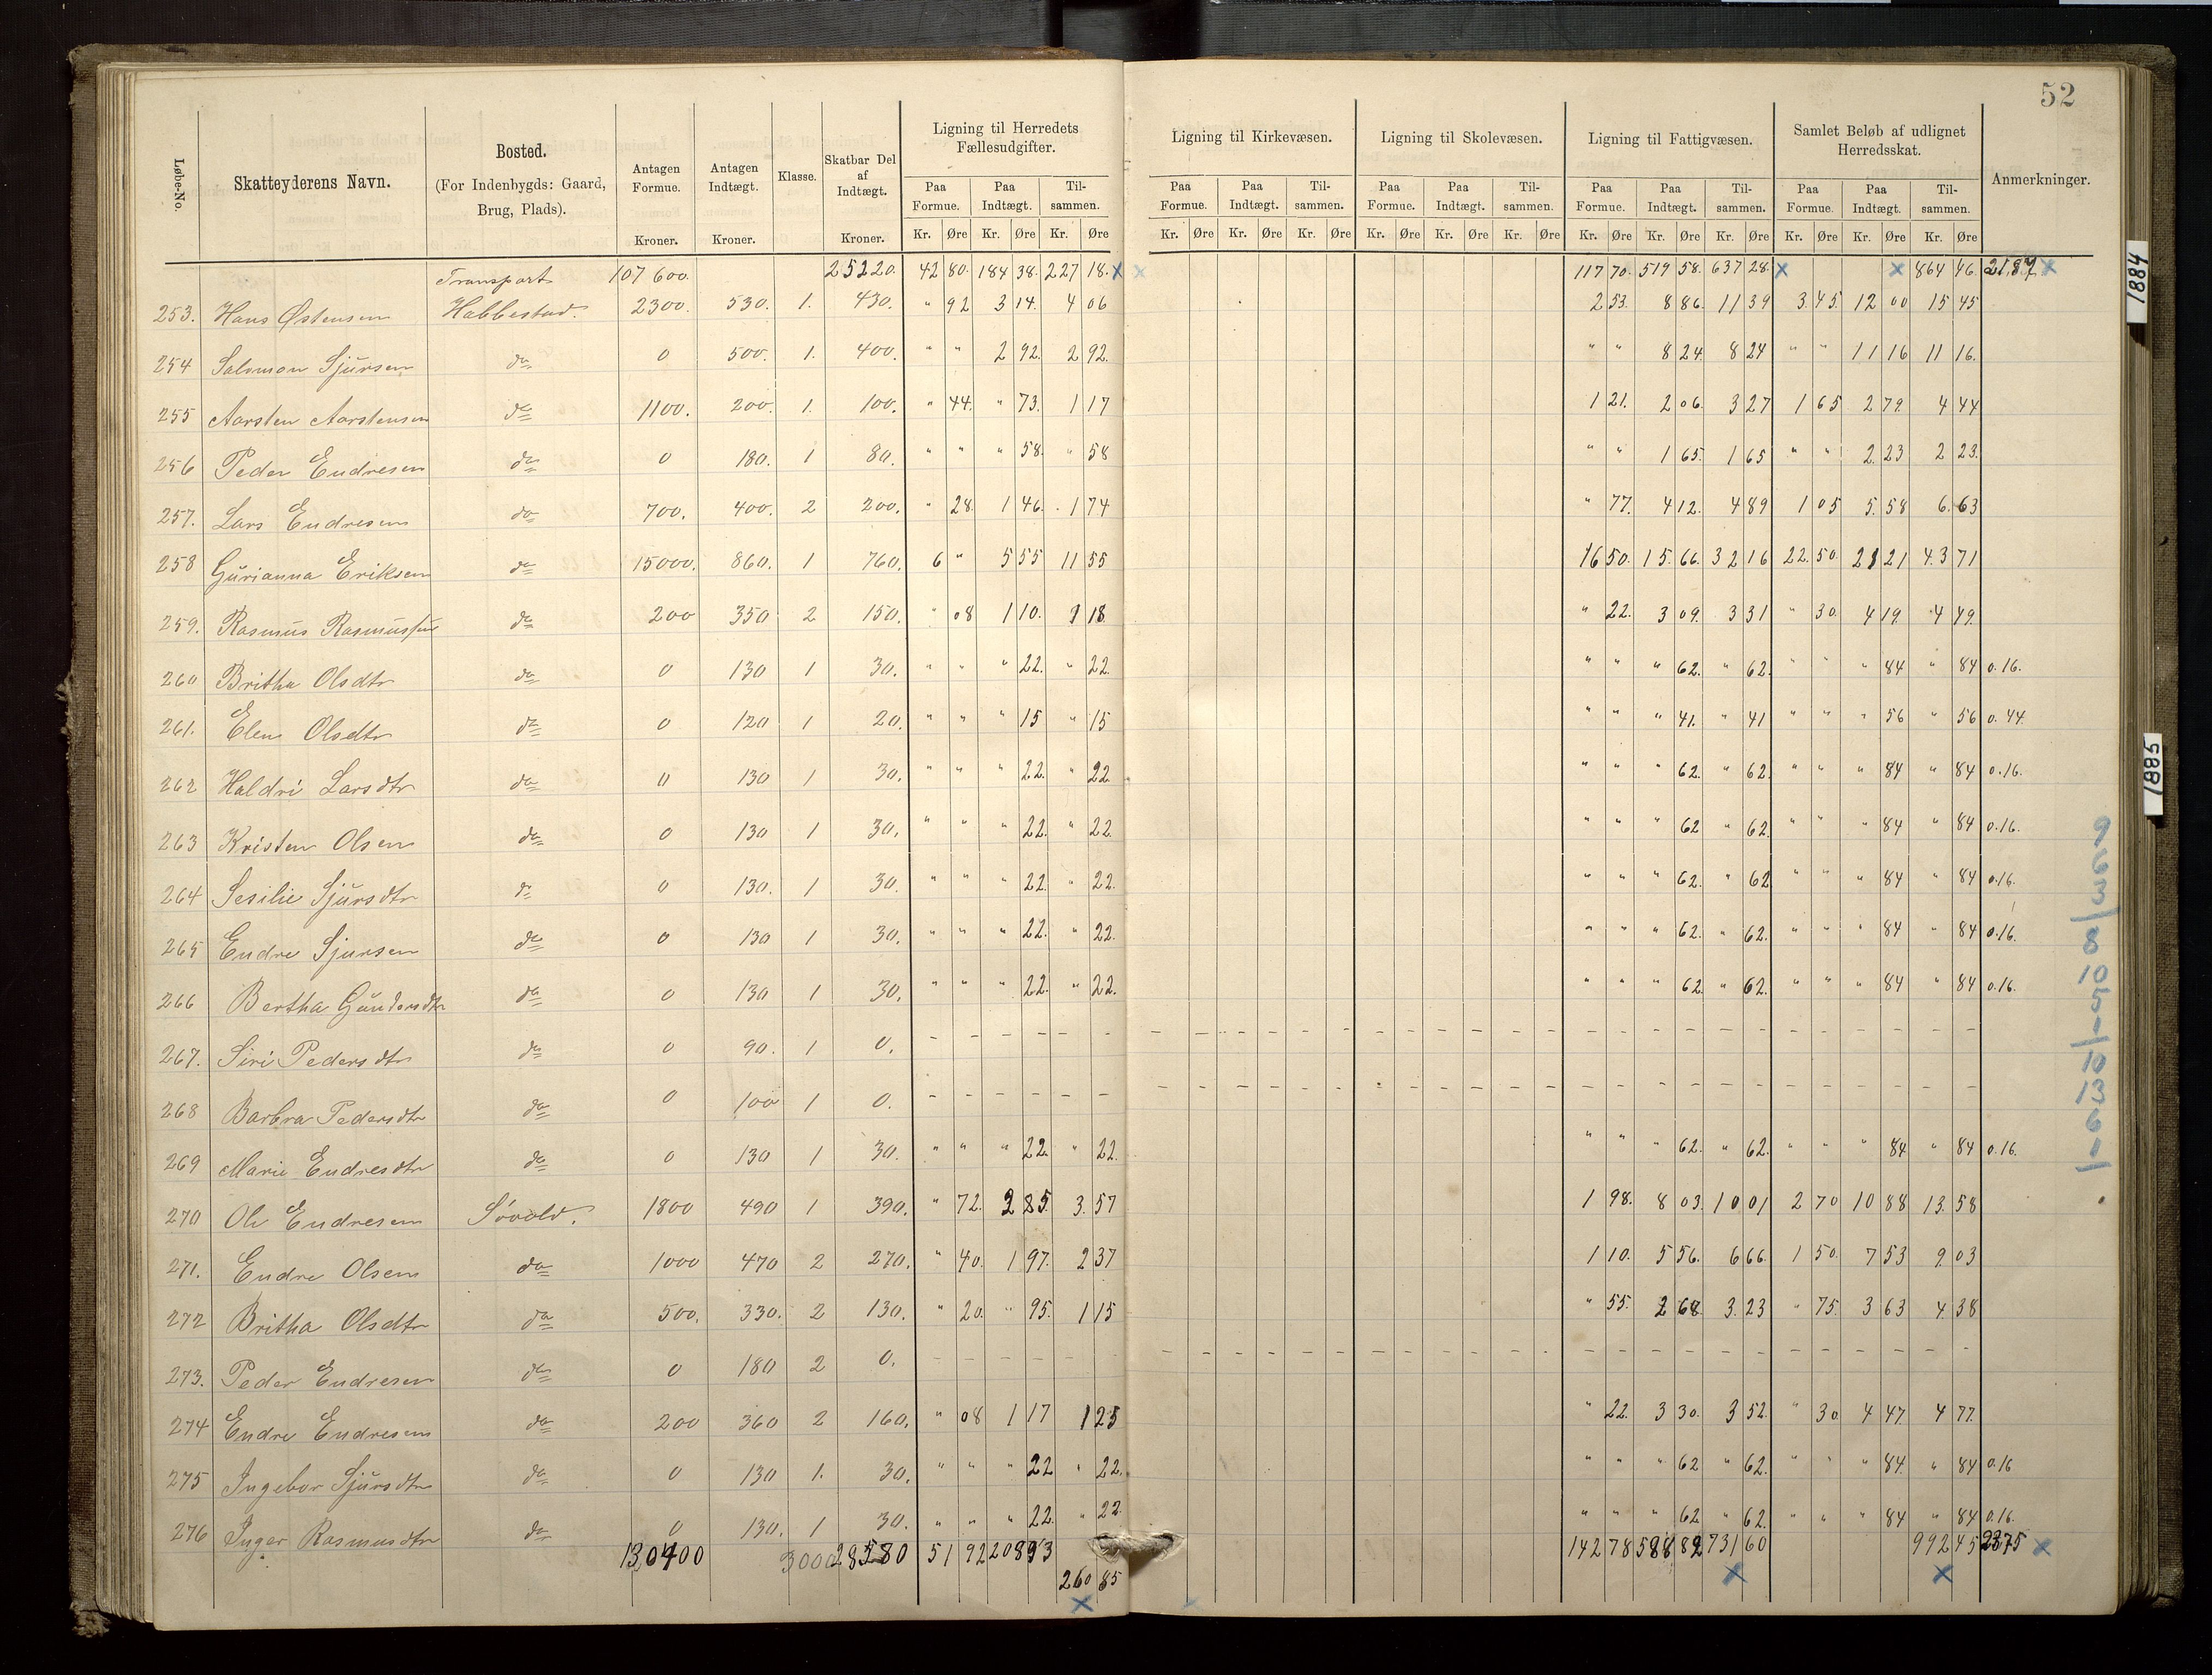 52
Løbe-No. Skatteyderens Navn. Bosted. (For Indenbygds: Gaard, Brug, Plads). Antagen Formue. Kroner. Antagen Indtægt. Kroner. Klasse. Skatbar Del af Indtægt. Kroner. Ligning til Herredets Fællesudgifter. Ligning til Kirkevæsen. Ligning til Skolevæsen. Ligning til Fattigvæsen. Samlet Beløb af udlignet Herredsskat. Anmerkninger.
Paa Formue. Paa Indtægt. Tilsammen. Paa Formue. Paa Indtægt. Tilsammen. Paa Formue. Paa Indtægt. Tilsammen. Paa Formue. Paa Indtægt. Tilsammen. Paa Formue. Paa Indtægt. Tilsammen.
Kr. Øre Kr. Øre Kr. Øre Kr. Øre Kr. Øre Kr. Øre Kr. Øre Kr. Øre Kr. Øre Kr. Øre Kr. Øre Kr. Øre Kr. Øre Kr. Øre Kr. Øre
Transport 107 600. 25220. 42 80. 184 38. 227 18. x x 117 70. 519 58. 637 28. x x 864 46. 21,87 x
253. Hans Østensen Habbestad. 2300. 530. 1. 430. " 92 3 14. 4 06 2 53. 8 86. 11 39 3 45. 12 00 15 45
254 Salomon Sjursen do 0 500. 1. 400. " " 2 92. 2 92. " " 8 24. 8 24 " " 11 16 11 16.
255 Aarsten Aarstensen do 1100. 200. 1. 100. " 44. " 73. 1 17 1 21. 2 06. 3 27 1 65 2 79. 4 44
256 Peder Endresen do 0 180. 1 80. " " " 58. " 58 " " 1 65. 1 65 " " 2 23 2 23.
257. Lars Endresen do 700. 400. 2 200. " 28. 1 46. 1 74 " 77. 4 12. 4 89 1 05 5 58 6. 63
258 Gurianna Eriksen do 15000. 860. 1 760. 6 " 5 55 11 55 16 50. 15. 66. 32 16 22. 50. 21 21 43 71
259. Rasmus Rasmussen do 200 350 2 150. " 08 1 10. 1 18. " 22. 3 09. 3 31 " 30. 4 19. 4 49.
260 Britha Olsdtr do 0 130 1 30. " " " 22. " 22. " " " 62. " 62. " " " 84 " 84 0.16.
261. Elen Olsdtr do 0 120 1 20. " " " 15 " 15 " " " 41. " 41 " " " 56 " 56 0.44
262 Haldri Larsdtr do 0 130 1 30. " " " 22. " 22. " " " 62. " 62. " " " 84 " 84 0.16.
263 Kristen Olsen do 0 130 1 30. " " " 22. " 22. " " " 62 " 62. " " " 84 " 84 0.16.
264 Sesilie Sjursdtr do 0 130. 1 30. " " " 22. " 22. " " " 62. " 62 " " " 84 " 84 0.16.
265 Endre Sjursen do 0 130 1 30. " " " 22. " 22. " " " 62. " 62. " " " 84 " 84 0.16.
266 Bertha Gundersdtr do 0 130 1 30. " " " 22. " 22. " " " 62. " 62. " " " 84 " 84 0.16.
267. Siri Pedersdtr do 0 90. 1 0. – – – – – – – – – – – – – – – – – – – – – – – – – – – – – –
268 Barbra Pedersdtr do 0 100 1 0. – – – – – – – – – – – – – – – – – – – – – – – – – – – – – –
269 Marie Endresdtr do 0 130 1 30. " " " 22. " 22. " " " 62. " 62. " " " 84 " 84 0.16.
270 Ole Endresen Søvold. 1800 490 1 390. " 72. 2 85. 3. 57 1 98. 8 03. 10 01 2 70 10 88 13.58
271. Endre Olsen do 1000 470 2 270. " 40. 1 97. 2 37 1 10. 5 56. 6 66. 1 50. 7 53 9. 03
272 Britha Olsdtr do 500. 330. 2 130. " 20. " 95. 1 15 " 55. 2 68. 3. 23 " 75. 3 63 4. 38
273. Peder Endresen do 0 180 2 0. – – – – – – – – – – – – – – – – – – – – – – – – – – – – – –
274 Endre Endresen do 200 360 2 160. " 08 1 17 1 25 " 22. 3 30. 3 52. " 30. 4 47. 4 77.
275 Ingebor Sjursdtr do 0 130 1. 30. " " " 22 " 22. " " " 62 " 62. " " " 84. " 84 0.16
276 Inger Rasmusdtr do 0 130. 1 30. " " " 22. " 22. " " " 62 " 62. " " " 84 " 84 0.16.
130400 28580 51 92 208 93 142 78 588 82 731 60 992 45 2375 x
260 85 x x
x
1884
1885